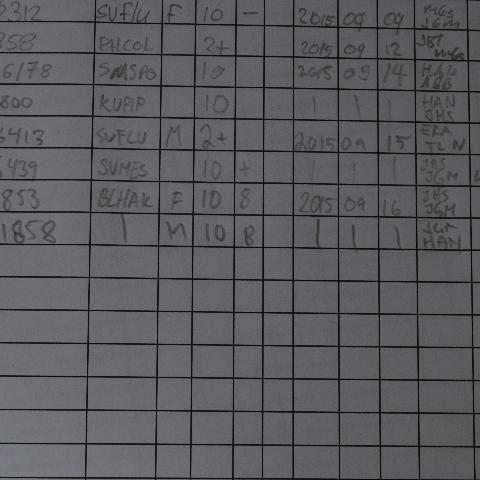 5312 SUFLU F 10 — 2015 09 09 MGS JGM
858 PHCOL 2+ 2015 09 12 JBT MGS
6178 SMSPO 10 2015 09 14 ABB
800 KUPIP 10 | | | HAN JHS
6413 SUFLU M 2+ 2015 09 15 ERA TLN
439 SUMES 10 + | | | JHS JGM
853 BLHAK F 10 8 2015 09 16 JHS JGM
1858 | M 10 B | | | JGM HAN